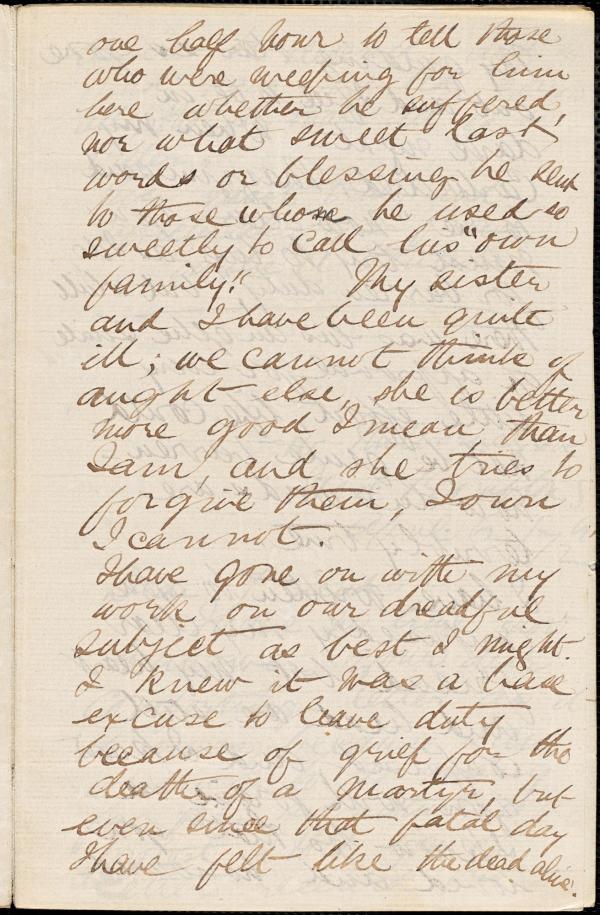 one half hour to tell those
who were weeping for him
here whether he suffered,
nor what sweet last
words or blessing he sent
to those whom he used so
sweetly to call his "own
family." My sister
and I have been quite
ill; we cannot think of
aught else, she is better
more good I mean, than
I am, and she tries to
forgive them, I own
I cannot.
I have gone on with my
work on our dreadful
subject as best I might.
I knew it was a base
excuse to leave duty
because of grief for the
death of a martyr, but
even since that fatal day
I have felt like the dead alive.